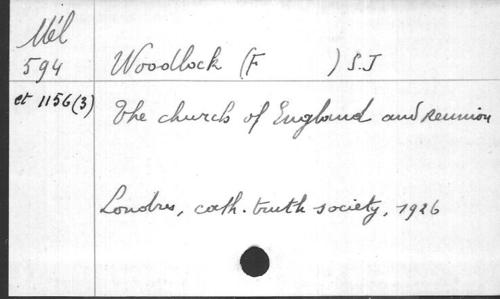 Mél
594
et 1156(3)
Woodlock (F ) S.J
The church of England and Reunion
Londres, cath. truth society, 1926